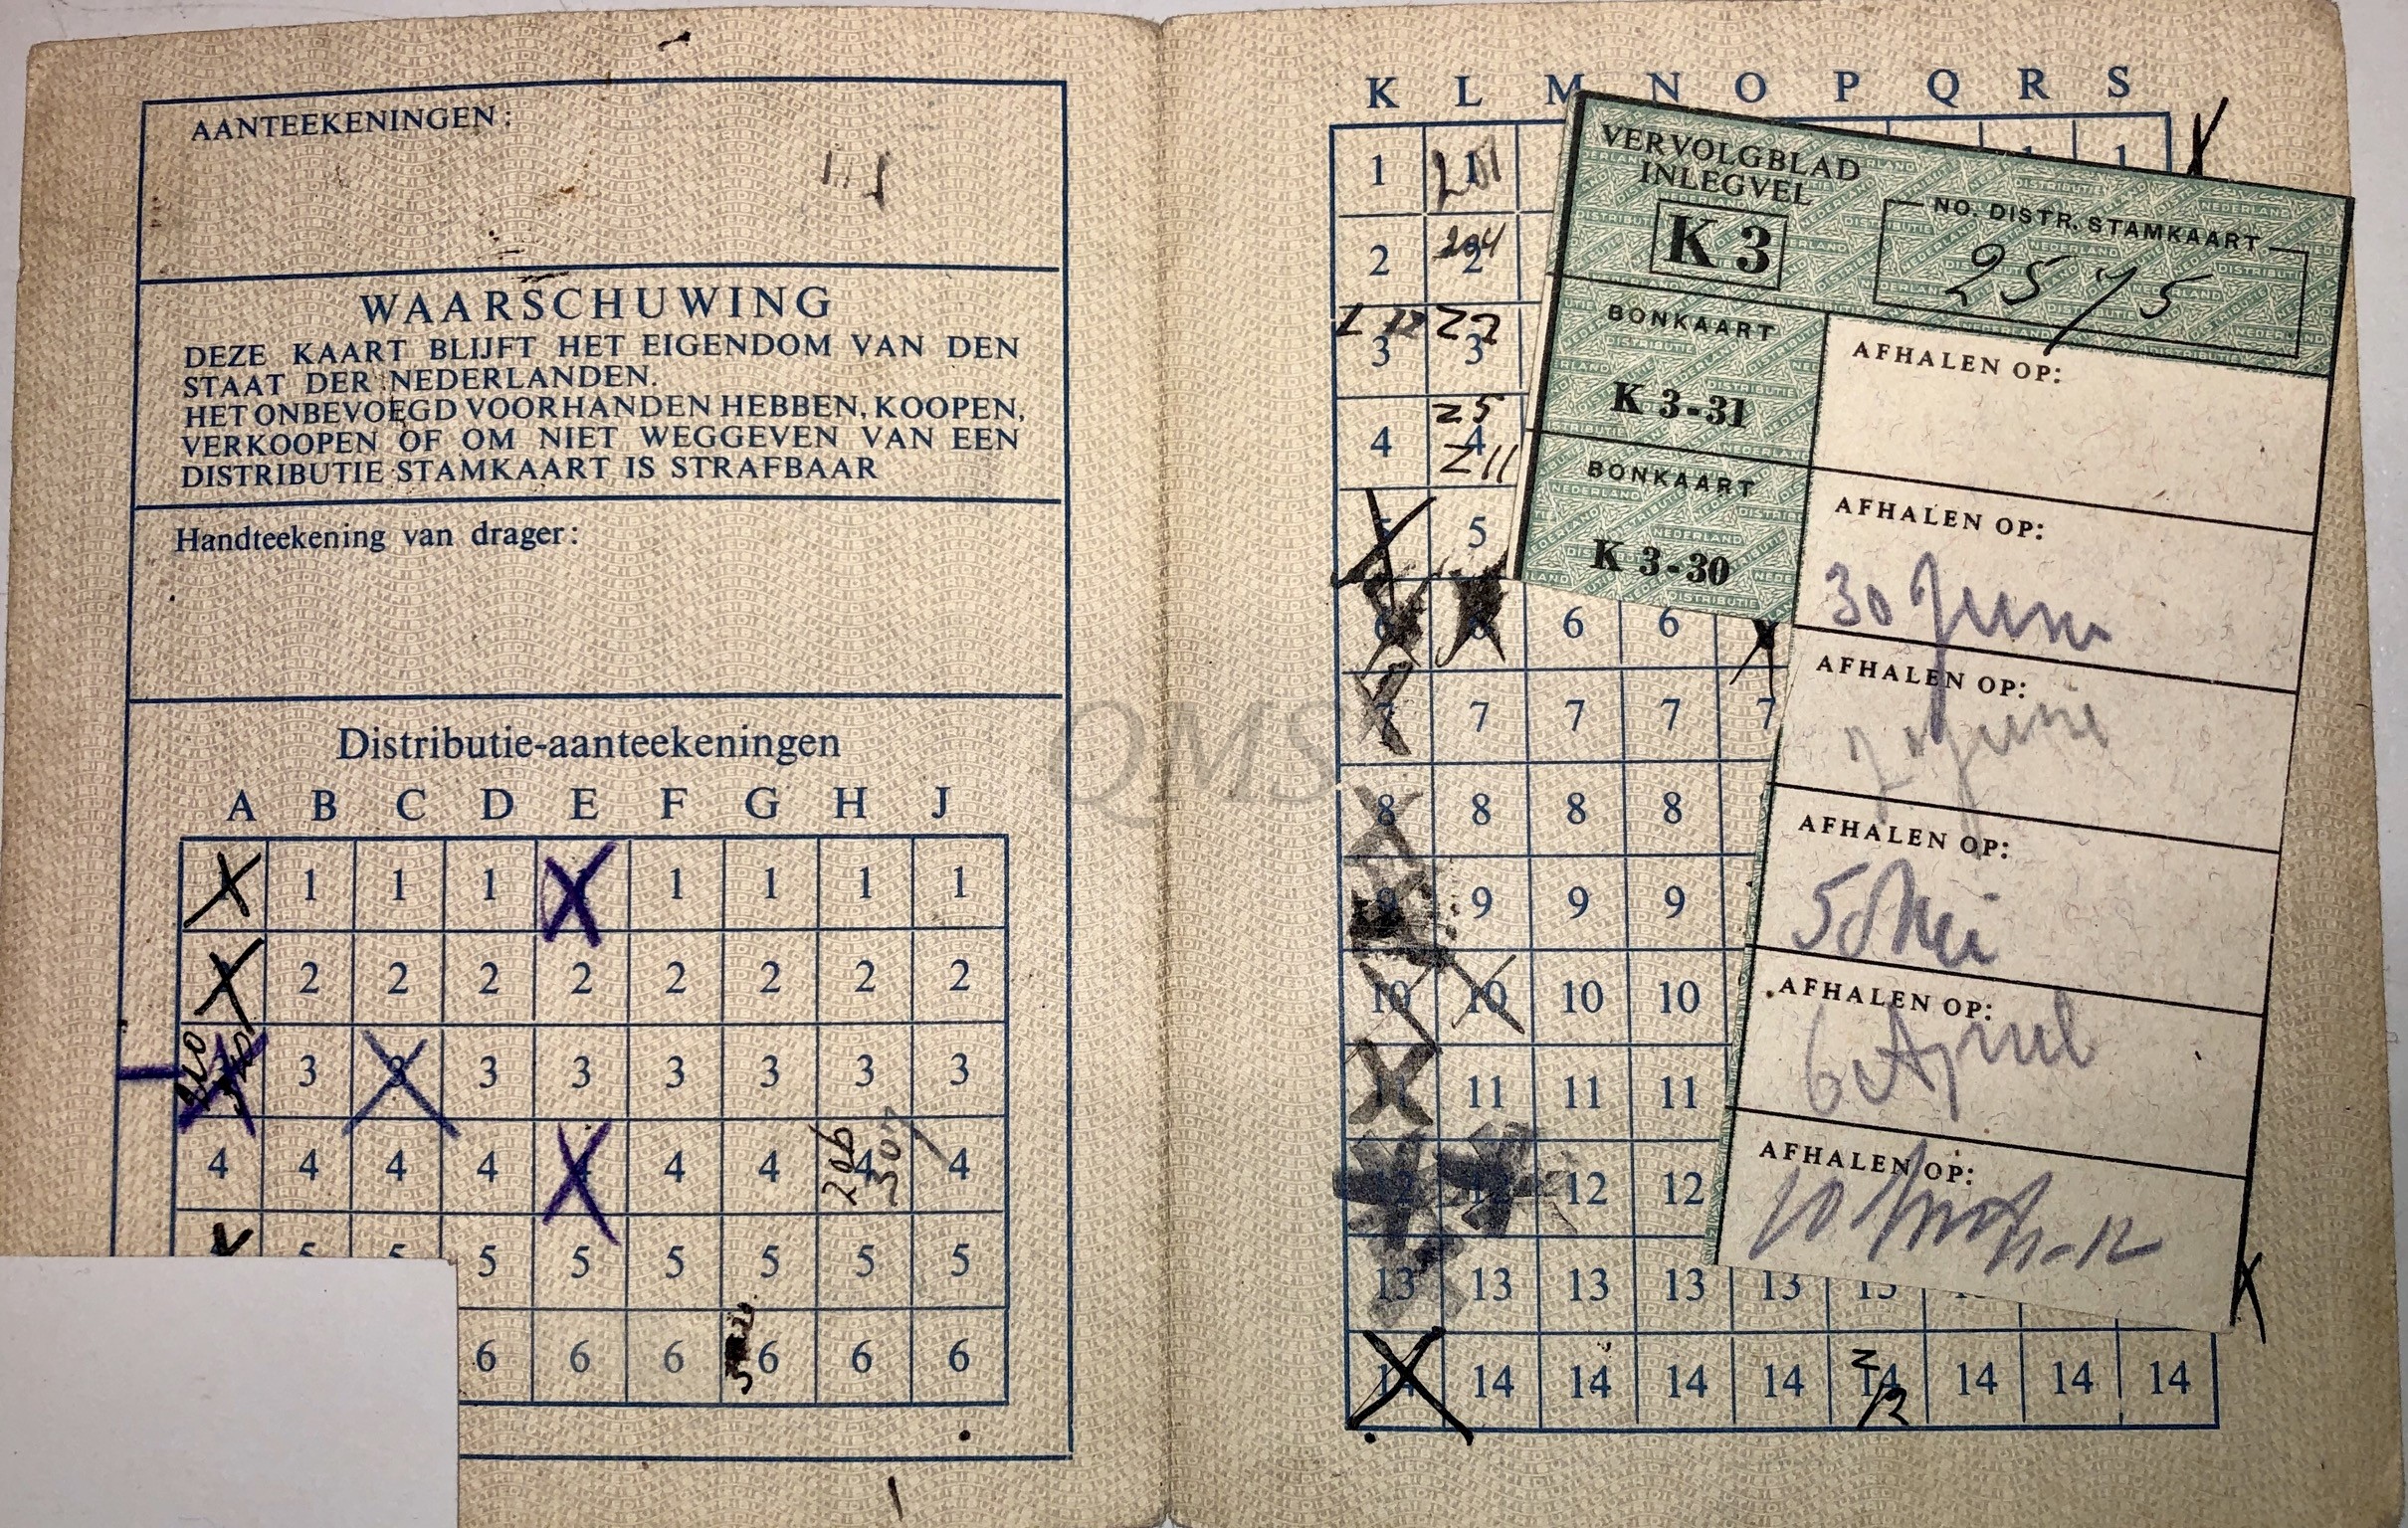 AANTEEKENINGEN:
WAARSCHUWING
DEZE KAART BLIJFT HET EIGENDOM VAN DEN
STAAT DER NEDERLANDEN.
HET ONBEVOEGD VOORHANDEN HEBBEN, KOOPEN,
VERKOOPEN OF OM NIET WEGGEVEN VAN EEN
DISTRIBUTIE STAMKAART IS STRAFBAAR
Handteekening van drager:
Distributie-aanteekeningen
A B C D E F G H J
1 1 1 1 1 1 1
2 2 2 2 2 2 2 2
3 3 3 3 3 3 3 3
4 4 4 4 4 4 4 4 4
206
307
5 5 5 5 5 5 5 5
6 6 6 6 6 6
QMS
K L M N O P Q R S
1 1 1 1
201
2 2
204
3 3
Z 7
4 4
Z 5
Z 11
5 5
6 6 6 6
7 7 7 7 7
8 8 8 8
9 9 9 9
10 10 10 10
11 11 11 11
12 12 12 12
13 13 13 13 13 13
14 14 14 14 14 14 14 14 14
Z
12
VERVOLGBLAD
INLEGVEL
K 3
NO. DISTR. STAMKAART
2575
BONKAART
K 3-31
AFHALEN OP:
BONKAART
K 3-30
AFHALEN OP:
30 Juni
AFHALEN OP:
2 Juni
AFHALEN OP:
5 Mei
AFHALEN OP:
6 April
AFHALEN OP:
10 11-12